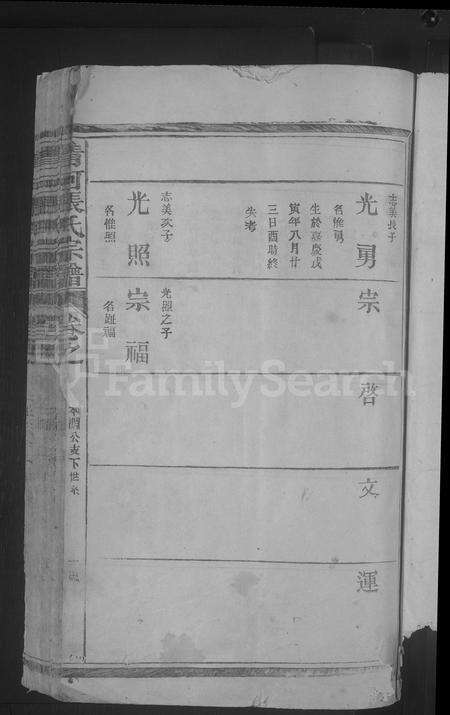 志美長子
光勇
名惟勇
生於嘉慶戊
寅年八月廿
三日酉時終
失考
宗
啓
文
運
志美次子
光照
名惟照
光照之子
宗福
名誕福
清河張氏宗譜
公支下世系
FamilySearch